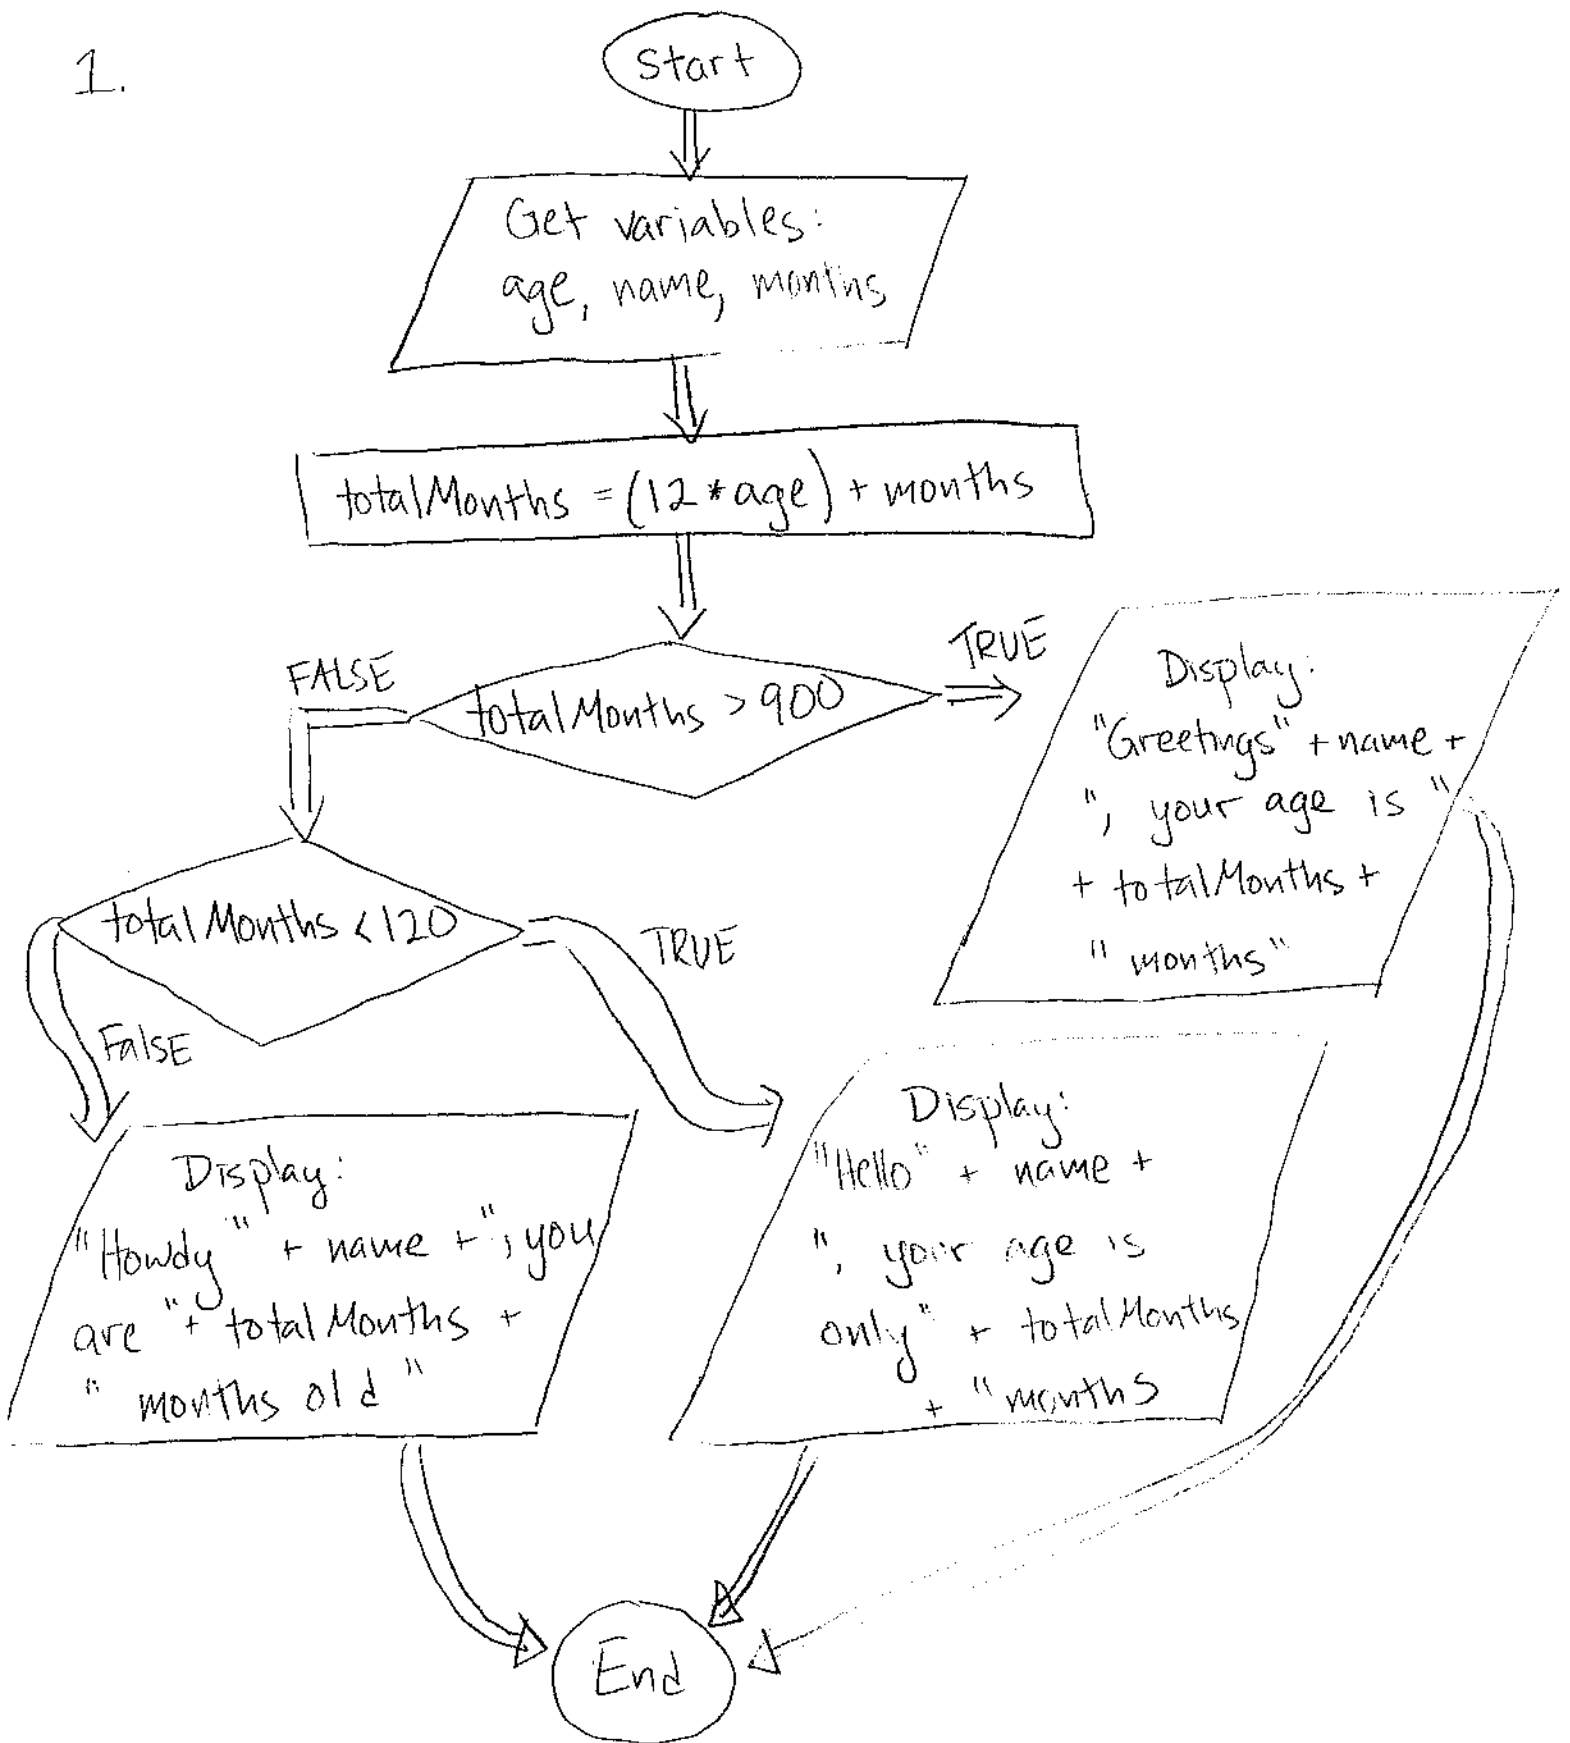 1.
Start
Get variables:
age, name, months
totalMonths = (12 * age) + months
totalMonths > 900
FALSE
TRUE
Display:
"Greetings" + name +
", your age is "
+ totalMonths +
" months"
totalMonths < 120
False
TRUE
Display:
"Howdy " + name + ", you
are " + totalMonths +
" months old "
Display:
"Hello" + name +
", your age is
only" + totalMonths
+ "months
End